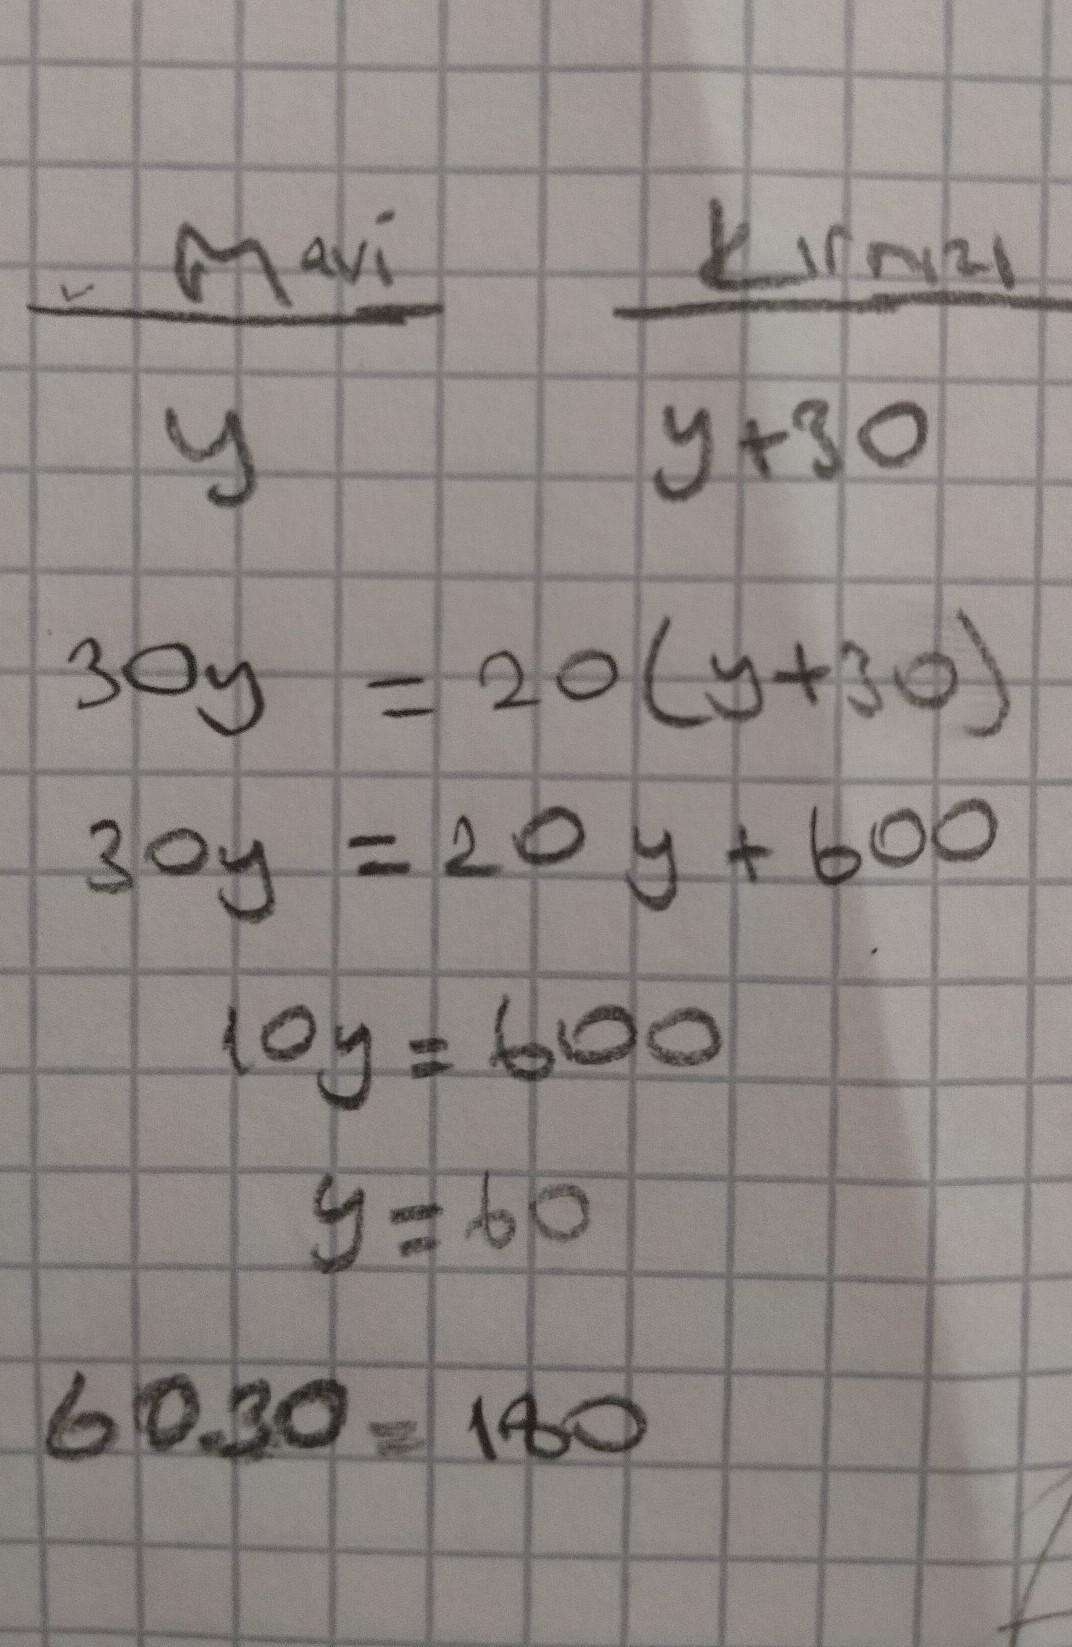 Mavi Kırmızı
y y+30
30y = 20(y+30)
30y = 20y + 600
10y = 600
y = 60
60.30 = 180